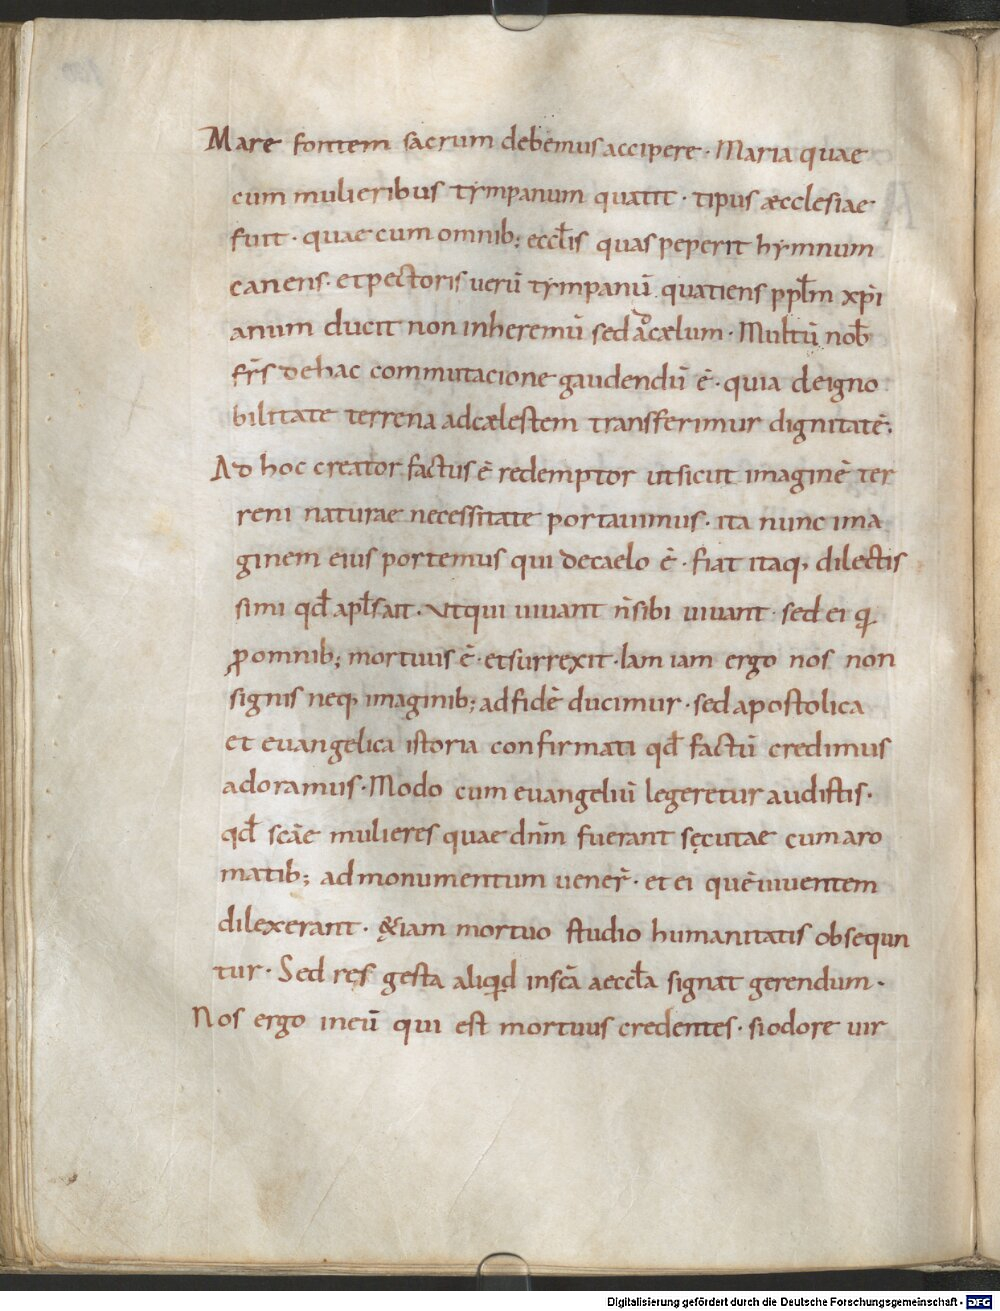 Mare fontem sacrum debemus accipere · Maria quae
cum mulieribus tympanum quatit · tipus æcclesiae
fuit · quae cum omnib; eccl̄is quas peperit hymnum
canens · et pectoris uerū tympanū quatiens ppl̄m xp̄i
anum ducit non in heremū sed ad cælum · Multū nob̄
fr̄s de hac commutacione gaudendū ē · quia de igno
bilitate terrena ad cælestem transfferimur dignitatē ·
Ad hoc creator factus ē redemptor ut sicut imaginē ter
reni naturae necessitate portauimus · ita nunc ima
ginem eius portemus qui de caelo ē · fiat itaq, dilectis
simi qd̄ apl̄s ait · Ut qui uiuant n̄ sibi uiuant · sed ei q
ꝓ omnib; mortuus ē · et surrexit · Iam iam ergo nos non
signis neq, imaginib; ad fidē ducimur · sed apostolica
et euangelica istoria confirmati qd̄ factū credimus
adoramus · Modo cum euangeliū legeretur audistis ·
qd̄ scāe mulieres quae dn̄m fuerant sęcutae cum aro
matib; ad monumentum uener̄ · et ei quē uiuentem
dilexerant · &iam mortuo studio humanitatis obsequn
tur · Sed res gesta aliqid in scā aeccl̄a signat gerendum ·
Nos ergo in eū qui est mortuus credentes · si odore uir
Digitalisierung gefördert durch die Deutsche Forschungsgemeinschaft - DFG